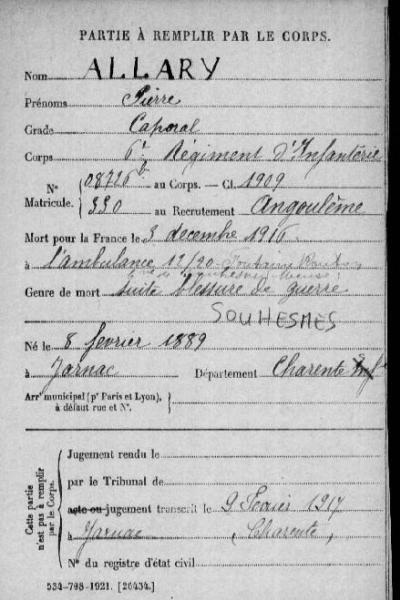 PARTIE À REMPLIR PAR LE CORPS.
Nom ALLARY
Prénoms Pierre
Grade Caporal
Corps 6e Régiment d'Infanterie
N° 08726 au Corps. — Cl. 1909
Matricule. 330 au Recrutement Angoulême
Mort pour la France le 3 decembre 1916
à l'ambulance 12/20
Genre de mort suite blessure de guerre
SOUHESMES
Né le 8 fevrier 1889
à Jarnac Département Charente
Arrt municipal (pr Paris et Lyon), à défaut rue et N°.
Cette partie n'est pas à remplir par le Corps.
Jugement rendu le
par le Tribunal de
acte ou jugement transcrit le 9 Fevrier 1917
à Jarnac (Charente)
N° du registre d'état civil
534-708-1921. [26434.]